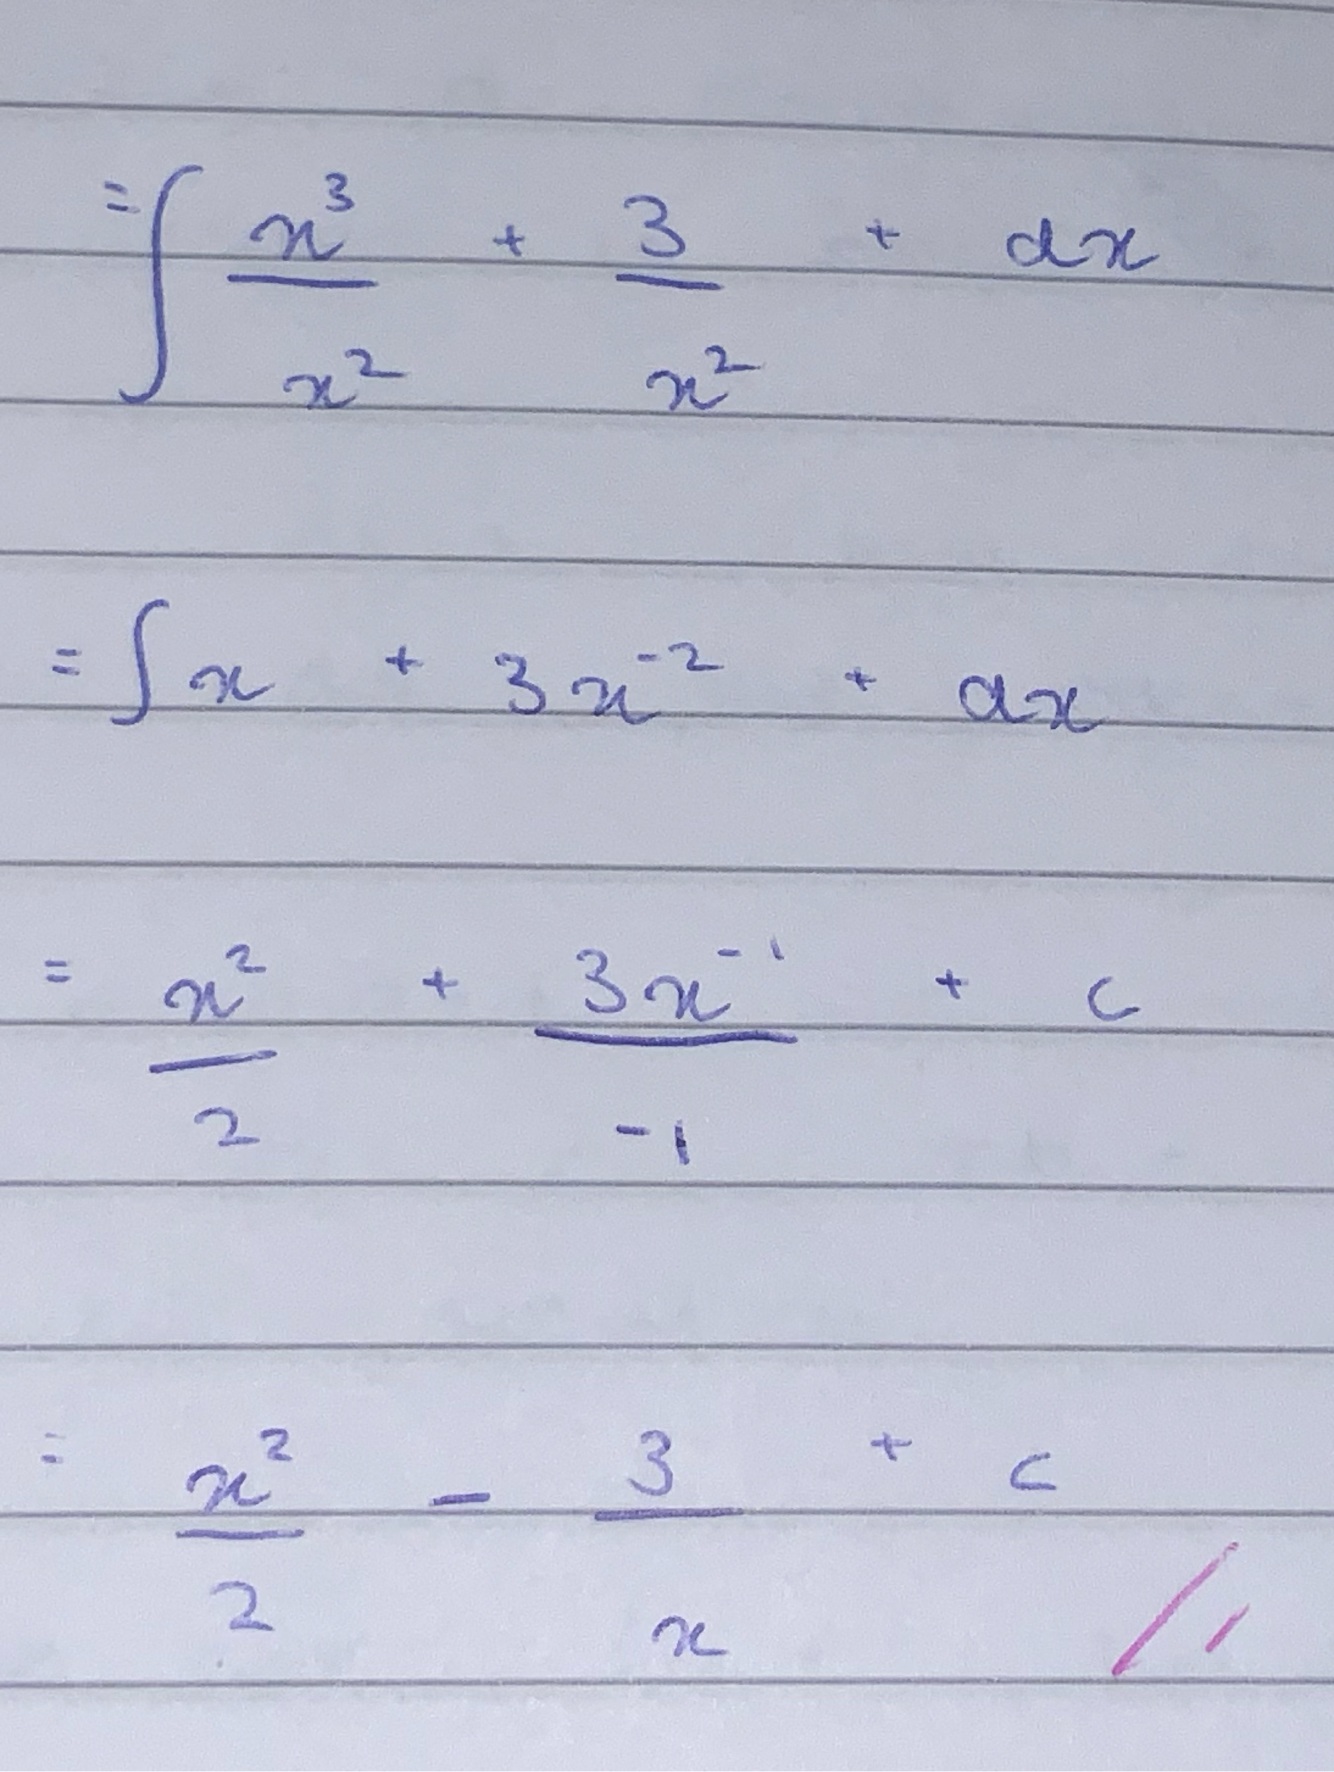 = ∫ x³/x² + 3/x² + dx
= ∫ x + 3x⁻² + dx
= x²/2 + 3x⁻¹/-1 + c
= x²/2 - 3/x + c //